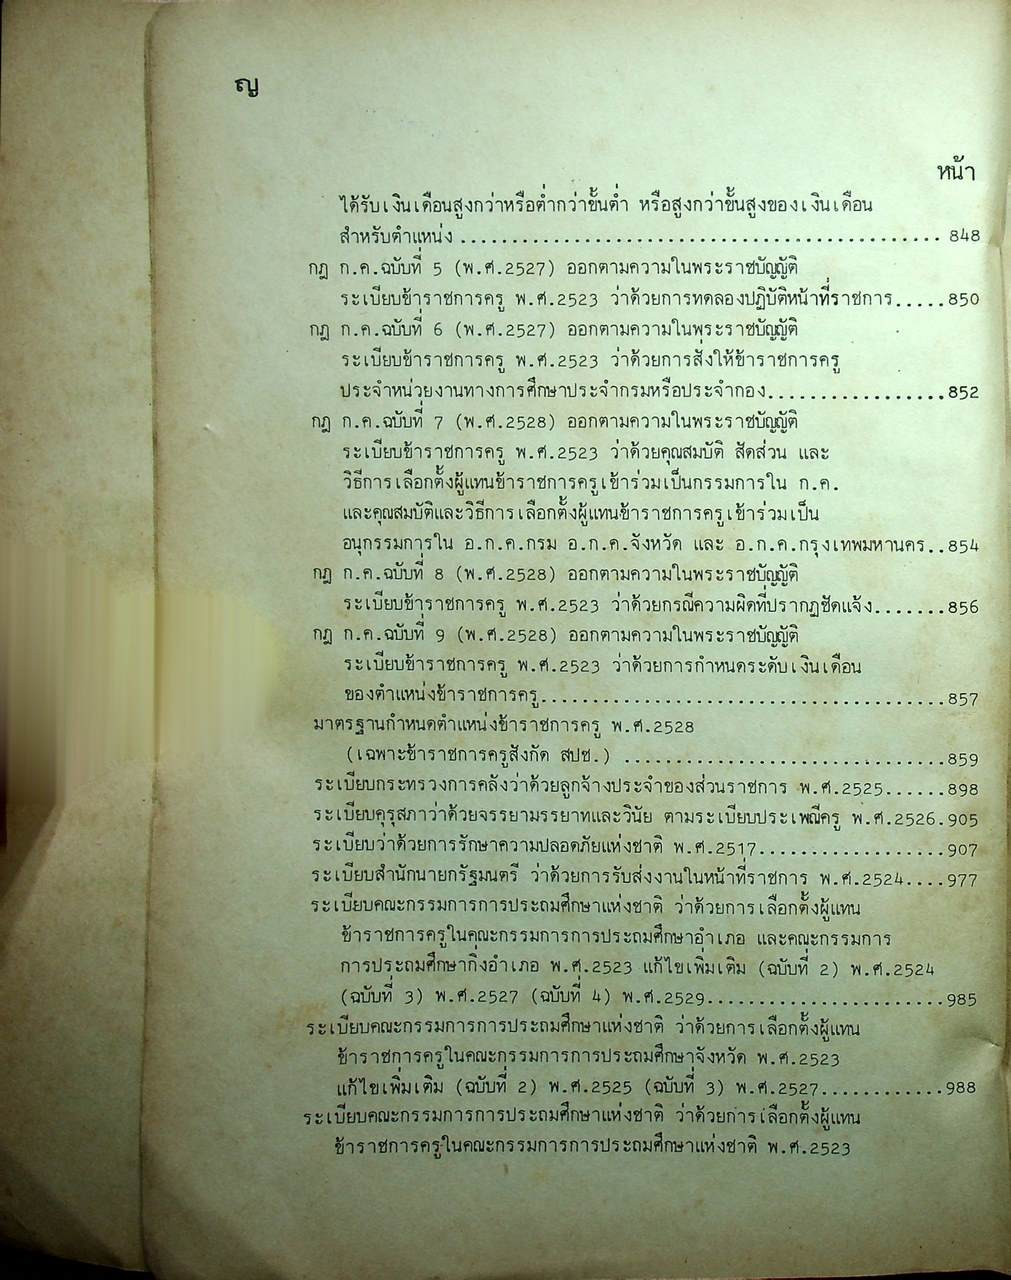 ญ
หน้า
ได้รับเงินเดือนสูงกว่าหรือต่ำกว่าขั้นต่ำ หรือสูงกว่าขั้นสูงของเงินเดือน
สำหรับตำแหน่ง ............................................... 848
กฎ ก.ค.ฉบับที่ 5 (พ.ศ.2527) ออกตามความในพระราชบัญญัติ
ระเบียบข้าราชการครู พ.ศ.2523 ว่าด้วยการทดลองปฏิบัติหน้าที่ราชการ.....850
กฎ ก.ค.ฉบับที่ 6 (พ.ศ.2527) ออกตามความในพระราชบัญญัติ
ระเบียบข้าราชการครู พ.ศ.2523 ว่าด้วยการสั่งให้ข้าราชการครู
ประจำหน่วยงานทางการศึกษาประจำกรมหรือประจำกอง.................852
กฎ ก.ค.ฉบับที่ 7 (พ.ศ.2528) ออกตามความในพระราชบัญญัติ
ระเบียบข้าราชการครู พ.ศ.2523 ว่าด้วยคุณสมบัติ สัดส่วน และ
วิธีการเลือกตั้งผู้แทนข้าราชการครูเข้าร่วมเป็นกรรมการใน ก.ค.
และคุณสมบัติและวิธีการเลือกตั้งผู้แทนข้าราชการครูเข้าร่วมเป็น
อนุกรรมการใน อ.ก.ค.กรม อ.ก.ค.จังหวัด และ อ.ก.ค.กรุงเทพมหานคร..854
กฎ ก.ค.ฉบับที่ 8 (พ.ศ.2528) ออกตามความในพระราชบัญญัติ
ระเบียบข้าราชการครู พ.ศ.2523 ว่าด้วยกรณีความผิดที่ปรากฏชัดแจ้ง.......856
กฎ ก.ค.ฉบับที่ 9 (พ.ศ.2528) ออกตามความในพระราชบัญญัติ
ระเบียบข้าราชการครู พ.ศ.2523 ว่าด้วยการกำหนดระดับเงินเดือน
ของตำแหน่งข้าราชการครู.......................................857
มาตรฐานกำหนดตำแหน่งข้าราชการครู พ.ศ.2528
(เฉพาะข้าราชการครูสังกัด สปช.) ...............................859
ระเบียบกระทรวงการคลังว่าด้วยลูกจ้างประจำของส่วนราชการ พ.ศ.2525......898
ระเบียบคุรุสภาว่าด้วยจรรยามรรยาทและวินัย ตามระเบียบประเพณีครู พ.ศ.2526.905
ระเบียบว่าด้วยการรักษาความปลอดภัยแห่งชาติ พ.ศ.2517..................907
ระเบียบสำนักนายกรัฐมนตรี ว่าด้วยการรับส่งงานในหน้าที่ราชการ พ.ศ.2524....977
ระเบียบคณะกรรมการการประถมศึกษาแห่งชาติ ว่าด้วยการเลือกตั้งผู้แทน
ข้าราชการครูในคณะกรรมการการประถมศึกษาอำเภอ และคณะกรรมการ
การประถมศึกษากิ่งอำเภอ พ.ศ.2523 แก้ไขเพิ่มเติม (ฉบับที่ 2) พ.ศ.2524
(ฉบับที่ 3) พ.ศ.2527 (ฉบับที่ 4) พ.ศ.2529.......................985
ระเบียบคณะกรรมการการประถมศึกษาแห่งชาติ ว่าด้วยการเลือกตั้งผู้แทน
ข้าราชการครูในคณะกรรมการการประถมศึกษาจังหวัด พ.ศ.2523
แก้ไขเพิ่มเติม (ฉบับที่ 2) พ.ศ.2525 (ฉบับที่ 3) พ.ศ.2527............988
ระเบียบคณะกรรมการการประถมศึกษาแห่งชาติ ว่าด้วยการเลือกตั้งผู้แทน
ข้าราชการครูในคณะกรรมการการประถมศึกษาแห่งชาติ พ.ศ.2523